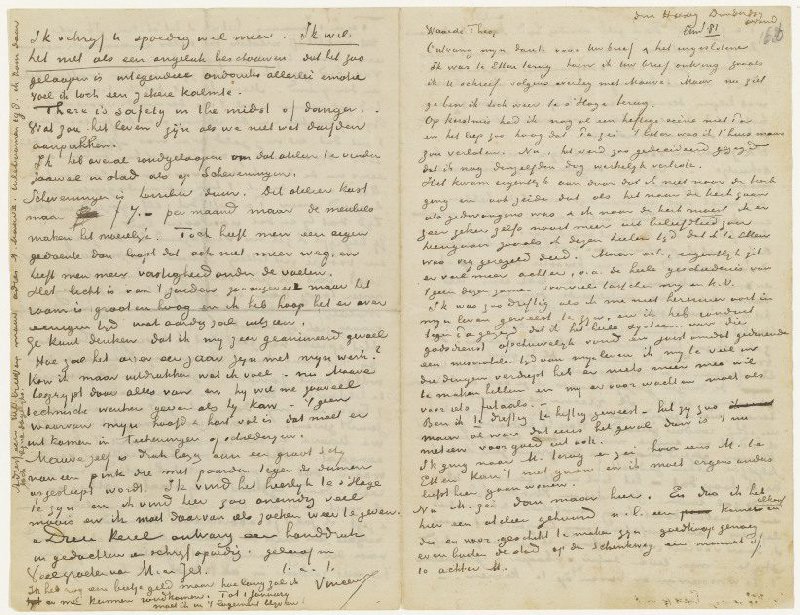 den Haag Donderdag
avond
Eind 81
Waarde Theo,
Ontvang mijn dank voor Uw brief & het ingeslotene
ik was te Etten terug toen ik Uw brief ontving zooals
ik U schreef volgens overleg met Mauve. Maar nu ziet
ge ben ik toch weer te s'Hage terug.
Op kerstmis had ik nog al een heftige scène met Pa
en het liep zoo hoog dat Pa zei 't beter was ik 't huis maar
zou verlaten. Nu, het werd zoo gedecideerd gezegd
dat ik nog dienzelfden dag werkelijk vertrok.
Het kwam eigentlijk daar door dat ik niet naar de kerk
ging en ook zeide dat als het naar de kerk gaan
iets gedwongens was & ik naar de kerk moest ik er
zeer zeker zelfs nooit meer uit beleefdheid zou
heengaan zooals ik dezen heelen tijd dat ik te Etten
was vrij geregeld deed. Maar ach, eigentlijk zit
er veel meer achter, o.a. de heele geschiedenis van
't geen dezen zomer voorviel tusschen mij en K.V.
Ik was zoo driftig als ik me niet herinner ooit in
mijn leven geweest te zijn, en ik heb ronduit
gezegd dat ik het heele systeem van die
godsdienst afschuwelijk vond en juist omdat gedurende
een miserabelen tijd van mijn leven ik mij te veel in
die dingen verdiept heb en niets meer mee wil
te maken hebben en mij er voor wachten moet als
voor iets fataals. –
Ben ik te driftig te heftig geweest – het zij zoo
maar al was dat eens het geval dan is 't nu
meteen voor goed uit ook.
Ik ging naar M. terug en zei: hoor eens M. te
Etten kan 't niet gaan en ik moet ergens anders
liefst hier gaan wonen.
Nu M. zei: dan maar hier. En dus ik heb
hier een atelier gehuurd n.l. een kamer en alkoof
die er voor geschikt te maken zijn goedkoop genoeg
even buiten de stad op de Schenkweg een minuut of
10 achter M.
Ik schrijf U spoedig wel meer. Ik wil
het niet als een ongeluk beschouwen dat het zoo
geloopen is integendeel ondanks allerlei emotie
voel ik toch een zekere kalmte.
There is safety in the midst of danger.
Wat zou het leven zijn als we niet wat durfden
aanpakken.
Ik heb overal rondgeloopen om dat atelier te vinden
zoowel in stad als op Scheveningen.
Scheveningen is horribel duur. Dit atelier kost
maar f 7.– per maand maar de meubels
maken het moeielijk. Toch heeft men een eigen
gedoente dan loopt dat ook niet meer weg, en
heeft men meer vastigheid onder de voeten.
Het licht is van 't zuiden maar het
raam is groot en hoog en ik heb hoop het er over
eenigen tijd wat aardig zal uitzien.
Ge kunt denken dat ik mij zeer geanimeerd gevoel
Hoe zal het over een jaar zijn met mijn werk?
Kon ik maar uitdrukken wat ik voel – nu Mauve
begrijpt daar alles van en hij wil me zooveel
technische wenken geven als hij kan. – 't geen
waarvan mijn hoofd & hart vol is dat moet er
uit komen in teekeningen of schilderijen.
Mauve zelf is druk bezig aan een groot schij
van een pink die met paarden tegen de duinen
opgesleept wordt. Ik vind het heerlijk te s'Hage
te zijn en ik vind hier zoo oneindig veel
moois en ik moet daarvan iets zoeken weer te geven.
Beste kerel ontvang een handdruk
in gedachten en schrijf spoedig. geloof mij
Veel groeten van M. en Jet. t. à t.
Vincent
Ik heb nog een beetje geld maar hoe lang zal ik
er mee kunnen rondkomen. Tot 1 January
moet ik in 't logement blijven.